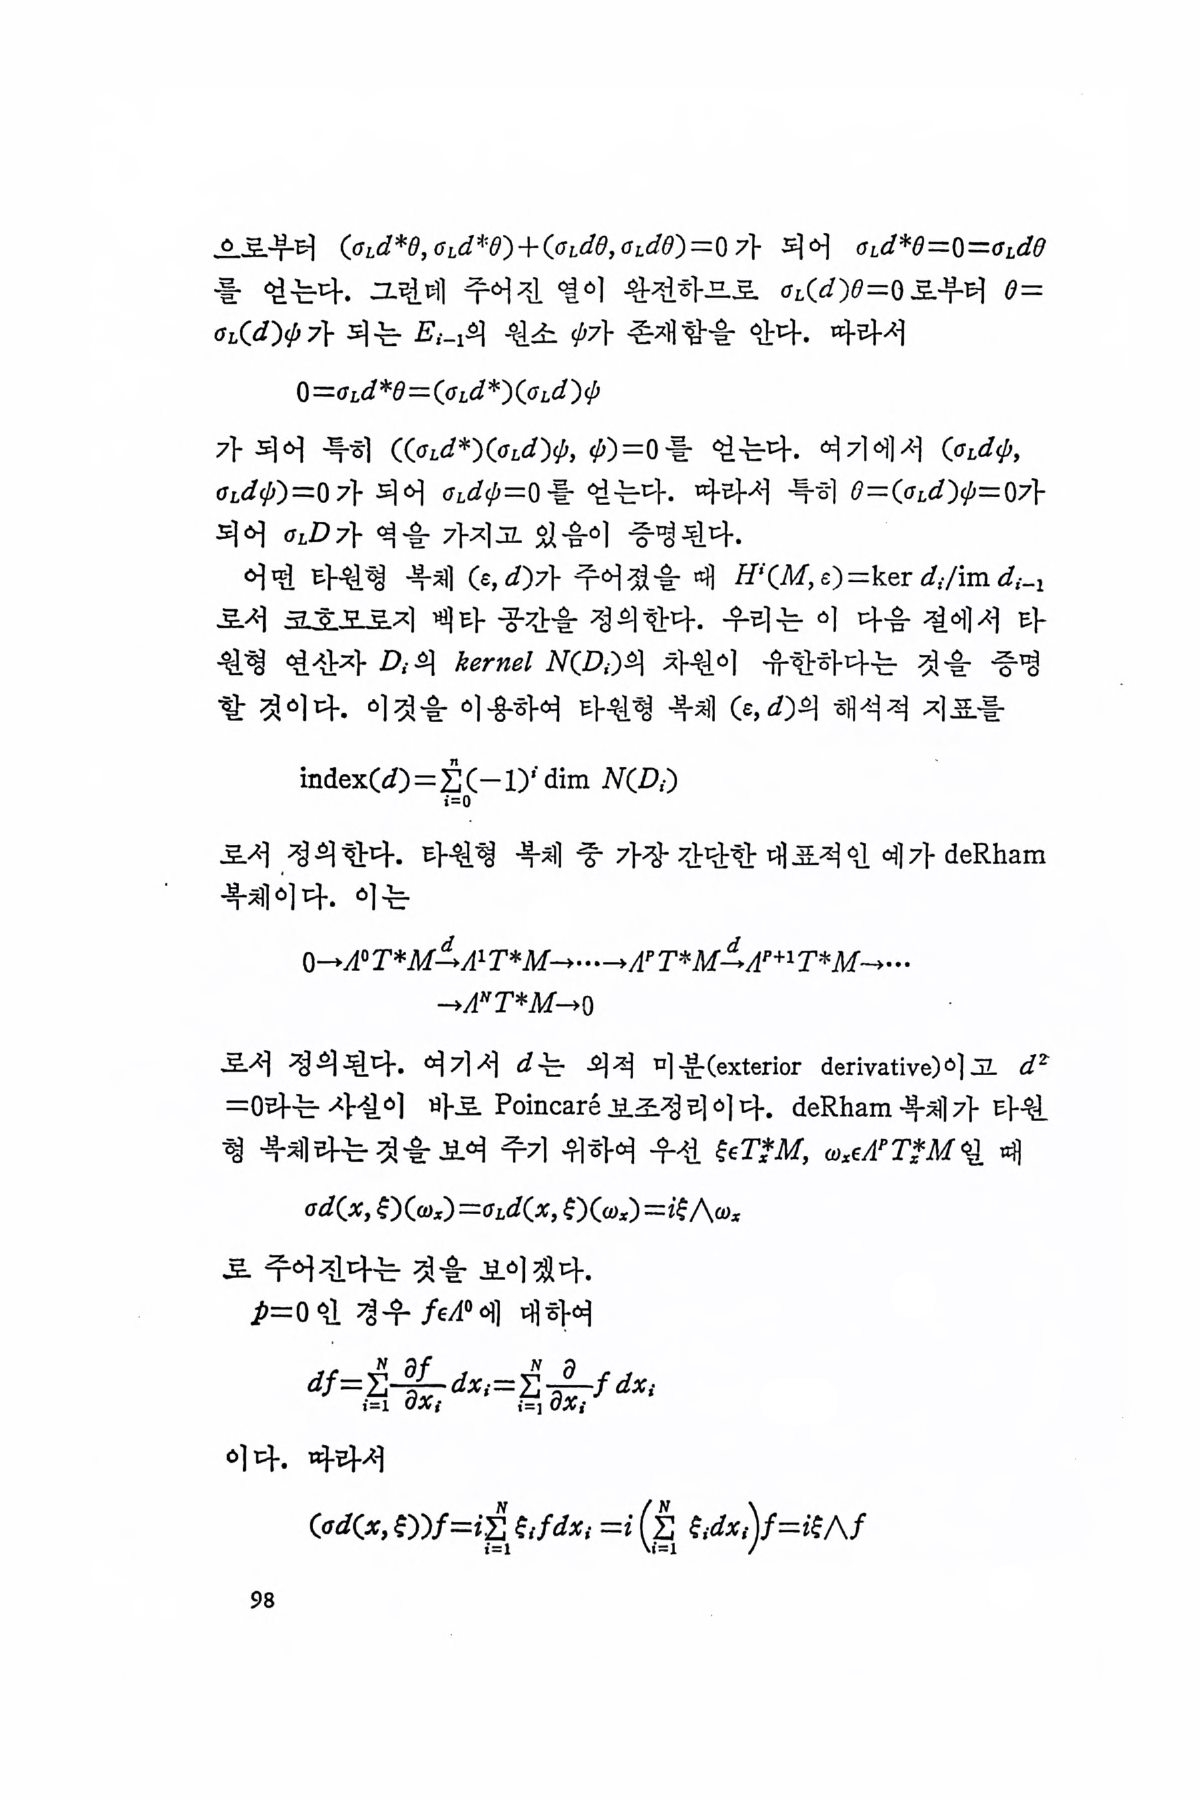 으로부터 (σ_L d*θ, σ_L d*θ)+(σ_L dθ, σ_L dθ)=0가 되어 σ_L d*θ=0=σ_L dθ
를 얻는다. 그런데 주어진 열이 완전하므로 σ_L(d)θ=0로부터 θ=
σ_L(d)ψ가 되는 E_{i-1}의 원소 ψ가 존재함을 안다. 따라서
0=σ_L d*θ=(σ_L d*)(σ_L d)ψ
가 되어 특히 ((σ_L d*)(σ_L d)ψ, ψ)=0를 얻는다. 여기에서 (σ_L dψ,
σ_L dψ)=0가 되어 σ_L dψ=0를 얻는다. 따라서 특히 θ=(σ_L d)ψ=0가
되어 σ_L D가 역을 가지고 있음이 증명된다.
어떤 타원형 복체 (ε, d)가 주어졌을 때 H^i(M, ε)=ker d_i/im d_{i-1}
로서 코호모로지 벡타 공간을 정의한다. 우리는 이 다음 절에서 타
원형 연산자 D_i의 kernel N(D_i)의 차원이 유한하다는 것을 증명
할 것이다. 이것을 이용하여 타원형 복체 (ε, d)의 해석적 지표를
index(d)=∑_{i=0}^{n}(-1)^i dim N(D_i)
로서 정의한다. 타원형 복체 중 가장 간단한 대표적인 예가 deRham
복체이다. 이는
0→Λ⁰T*M→^d Λ¹T*M→⋯→Λ^p T*M→^d Λ^{p+1}T*M→⋯
→Λ^N T*M→0
로서 정의된다. 여기서 d는 외적 미분(exterior derivative)이고 d²
=0라는 사실이 바로 Poincaré 보조정리이다. deRham 복체가 타원
형 복체라는 것을 보여 주기 위하여 우선 ξϵT*_x M, ω_x ϵΛ^p T*_x M일 때
σd(x, ξ)(ω_x)=σ_L d(x, ξ)(ω_x)=iξ∧ω_x
로 주어진다는 것을 보이겠다.
p=0인 경우 fϵΛ⁰에 대하여
df=∑_{i=1}^{N} ∂f/∂x_i dx_i=∑_{i=1}^{N} ∂/∂x_i f dx_i
이다. 따라서
(σd(x, ξ))f=i∑_{i=1}^{N} ξ_i f dx_i =i(∑_{i=1}^{N} ξ_i dx_i)f=iξ∧f
98